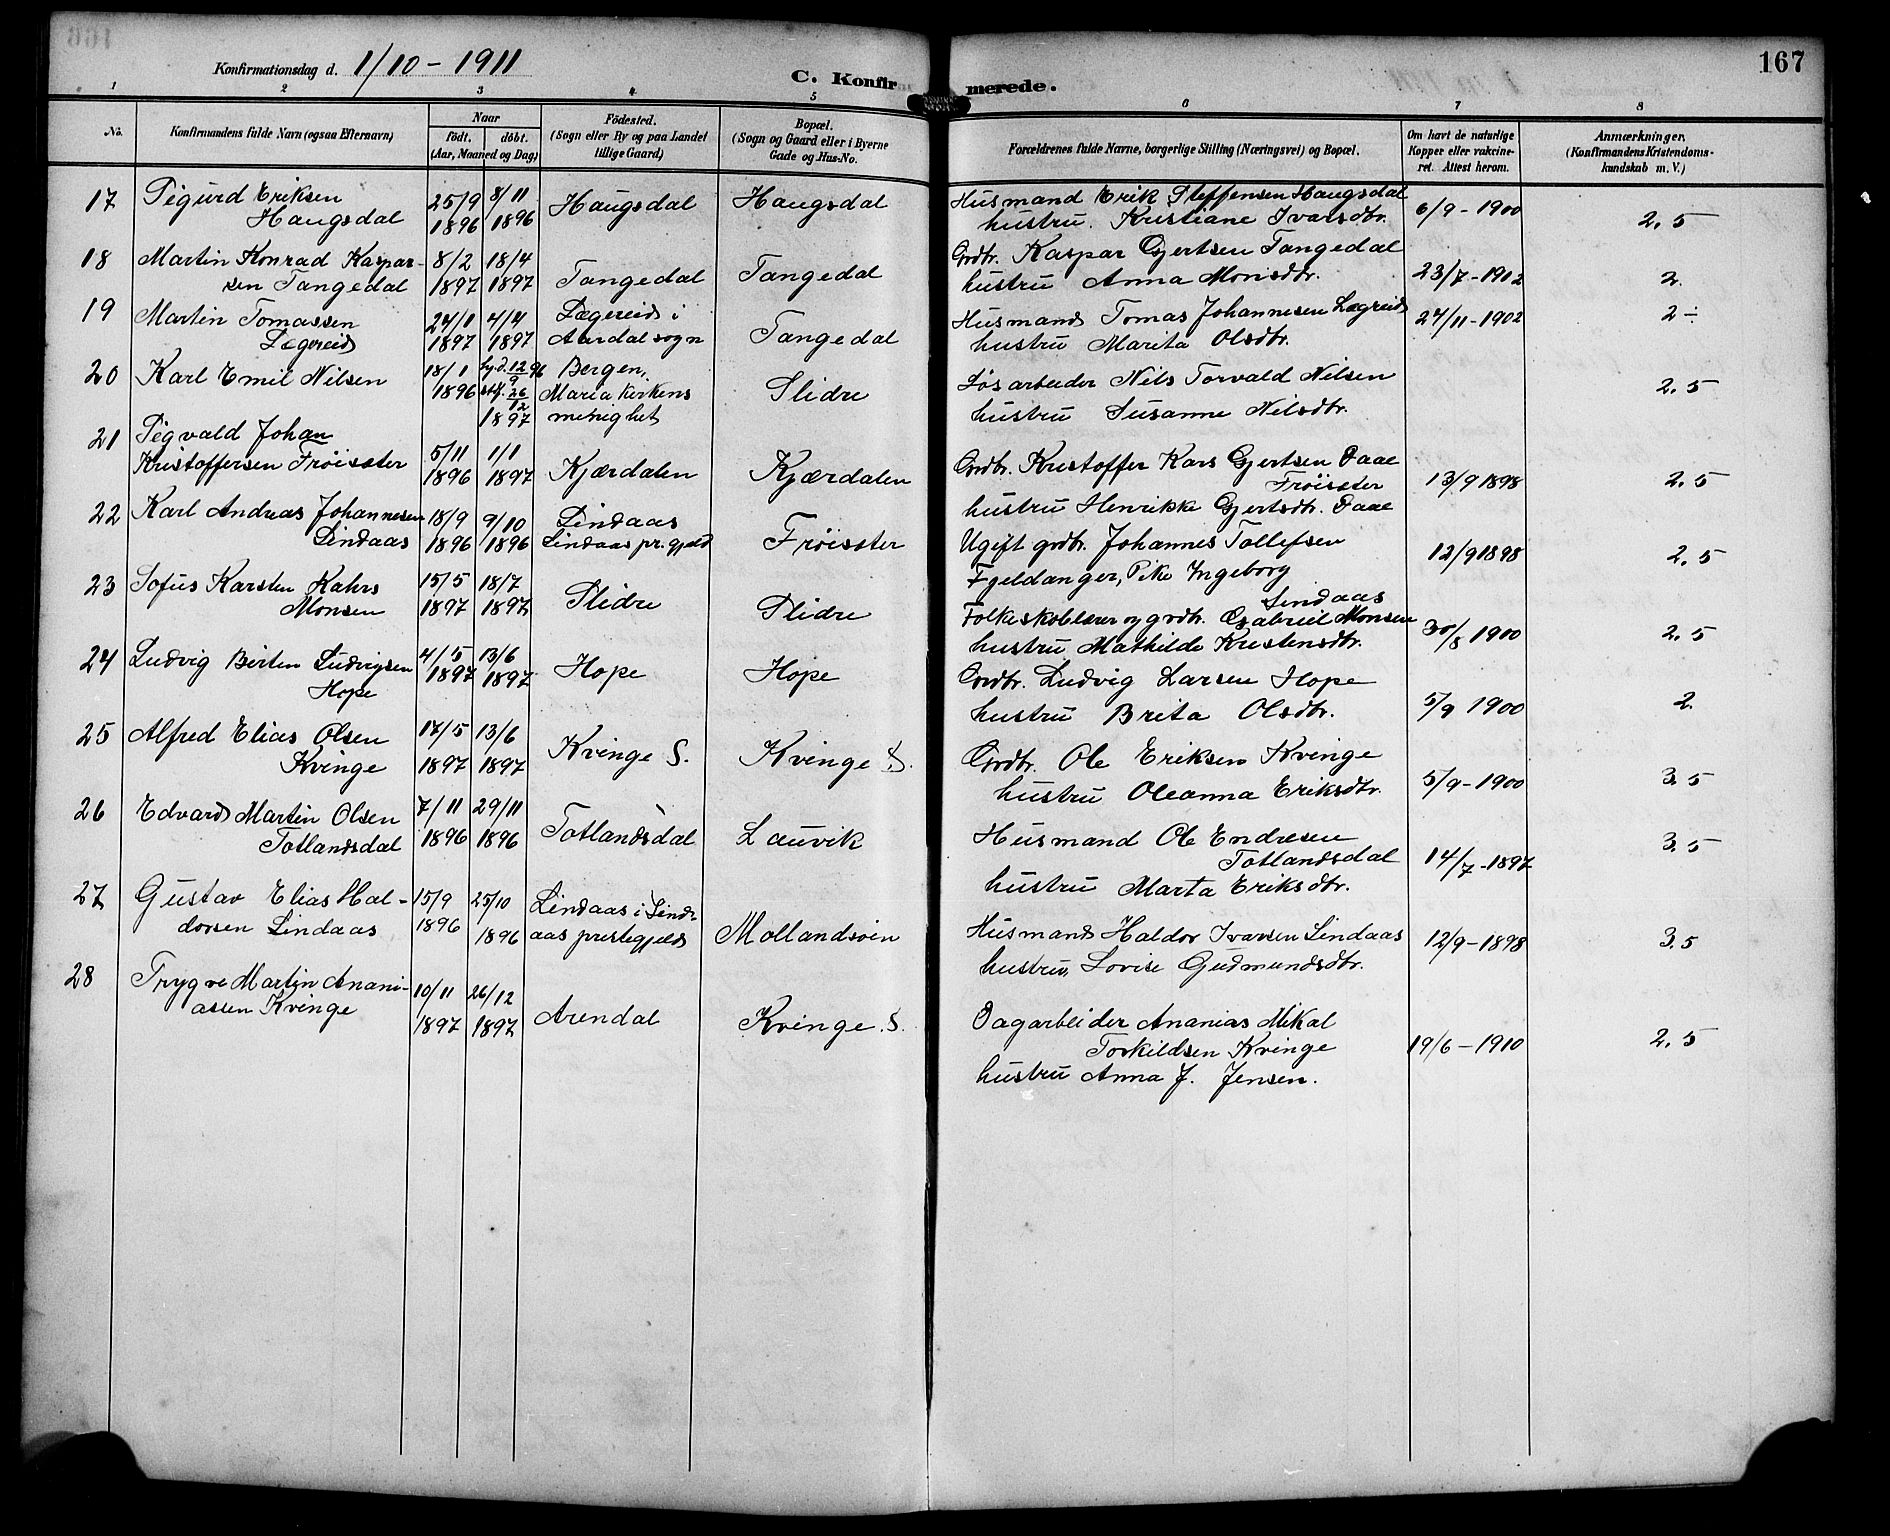 167
Konfirmationsdag d. 1/10 - 1911
C. Konfirmerede.
1 2 3 4 5 6 7 8
No. Konfirmandens fulde Navn (ogsaa Efternavn) Naar födt. döbt. (Aar, Maaned og Dag) Födested. (Sogn eller By og paa Landet tillige Gaard) Bopæl. (Sogn og Gaard eller i Byerne Gade og Hus-No. Forældrenes fulde Navne, borgerlige Stilling (Næringsvei) og Bopæl. Om havt de naturlige Kopper eller vakcineret. Attest herom. Anmærkninger. (Konfirmandens Kristendomskundskab m. V.)
17 Sigurd Eriksen 25/9 8/11 Haugsdal Haugsdal Husmand Erik Steffensen Haugsdal 6/9 - 1900 2.5
Haugsdal 1896 1896 hustru Kristiane Ivarsdtr.
18 Martin Konrad Kaspar- 8/2 18/4 Tangedal Tangedal Grdbr. Kaspar Gjertsen Tangedal 23/7 - 1902 2.
sen Tangedal 1897 1897 hustru Anna Monsdtr.
19 Martin Tomassen 24/1 4/4 Lægreid i Tangedal Husmand Tomas Johannesen Lægreid 24/11 - 1902 2 ÷
Lægreid 1897 1897 Aardal sogn hustru Marita Olsdtr.
20 Karl Emil Nilsen 18/1 hj.d. 12/9 96 Bergen, Slidre Løsarbeider Nils Torvald Nilsen 2.5
1896 stf. 26/12 Mariakirkens hustru Susanne Nilsdtr.
1897 menighet
21 Sigvald Johan 5/11 1/1 Kjærdalen Kjærdalen Grdbr. Kristoffer Kars Gjertsen Daae 13/9 1898 2.5
Kristoffersen Frøisæter 1896 1897 Frøisæter
hustru Henrikke Gjertsdtr. Daae
22 Karl Andreas Johannesen 18/9 9/10 Lindaas Frøisæter Ugift grdbr. Johannes Tollefsen 12/9 1898 2.5
Lindaas 1896 1896 Lindaas pr.gjeld Fjeldanger, Pike Ingeborg
Lindaas
23 Sofus Karsten Kahrs 15/5 18/7 Slidre Slidre Folkeskolelærer og grdbr. Gabriel Monsen 30/8 1900 2.5
Monsen 1897 1897 hustru Mathilde Kristensdtr.
24 Ludvig Bertin Ludvigsen 4/5 13/6 Hope Hope Grdbr. Ludvig Larsen Hope 5/9 1900 2.
Hope 1897 1897 hustru Brita Olsdtr.
25 Alfred Elias Olsen 17/5 13/6 Kvinge S. Kvinge S. Grdbr. Ole Eriksen Kvinge 5/9 - 1900 3.5
Kvinge 1897 1897 hustru Oleanna Eriksdtr.
26 Edvard Martin Olsen 7/11 29/11 Totlandsdal Lauvik Husmand Ole Endresen 14/7 - 1897 3.5
Totlandsdal 1896 1896 Totlandsdal
hustru Marta Eriksdtr.
27 Gustav Elias Hal- 15/9 25/10 Lindaas i Lind- Mollandsøen Husmand Haldor Ivarsen Lindaas 12/9 - 1898 3.5
dorsen Lindaas 1896 1896 aas prestegjeld hustru Lovise Gudmundsdtr.
28 Trygve Martin Anani- 10/11 26/12 Arendal Kvinge. S. Dagarbeider Ananias Mikal 19/6 - 1910 2.5
assen Kvinge 1897 1897 Torkildsen Kvinge
hustru Anna J. Jensen.